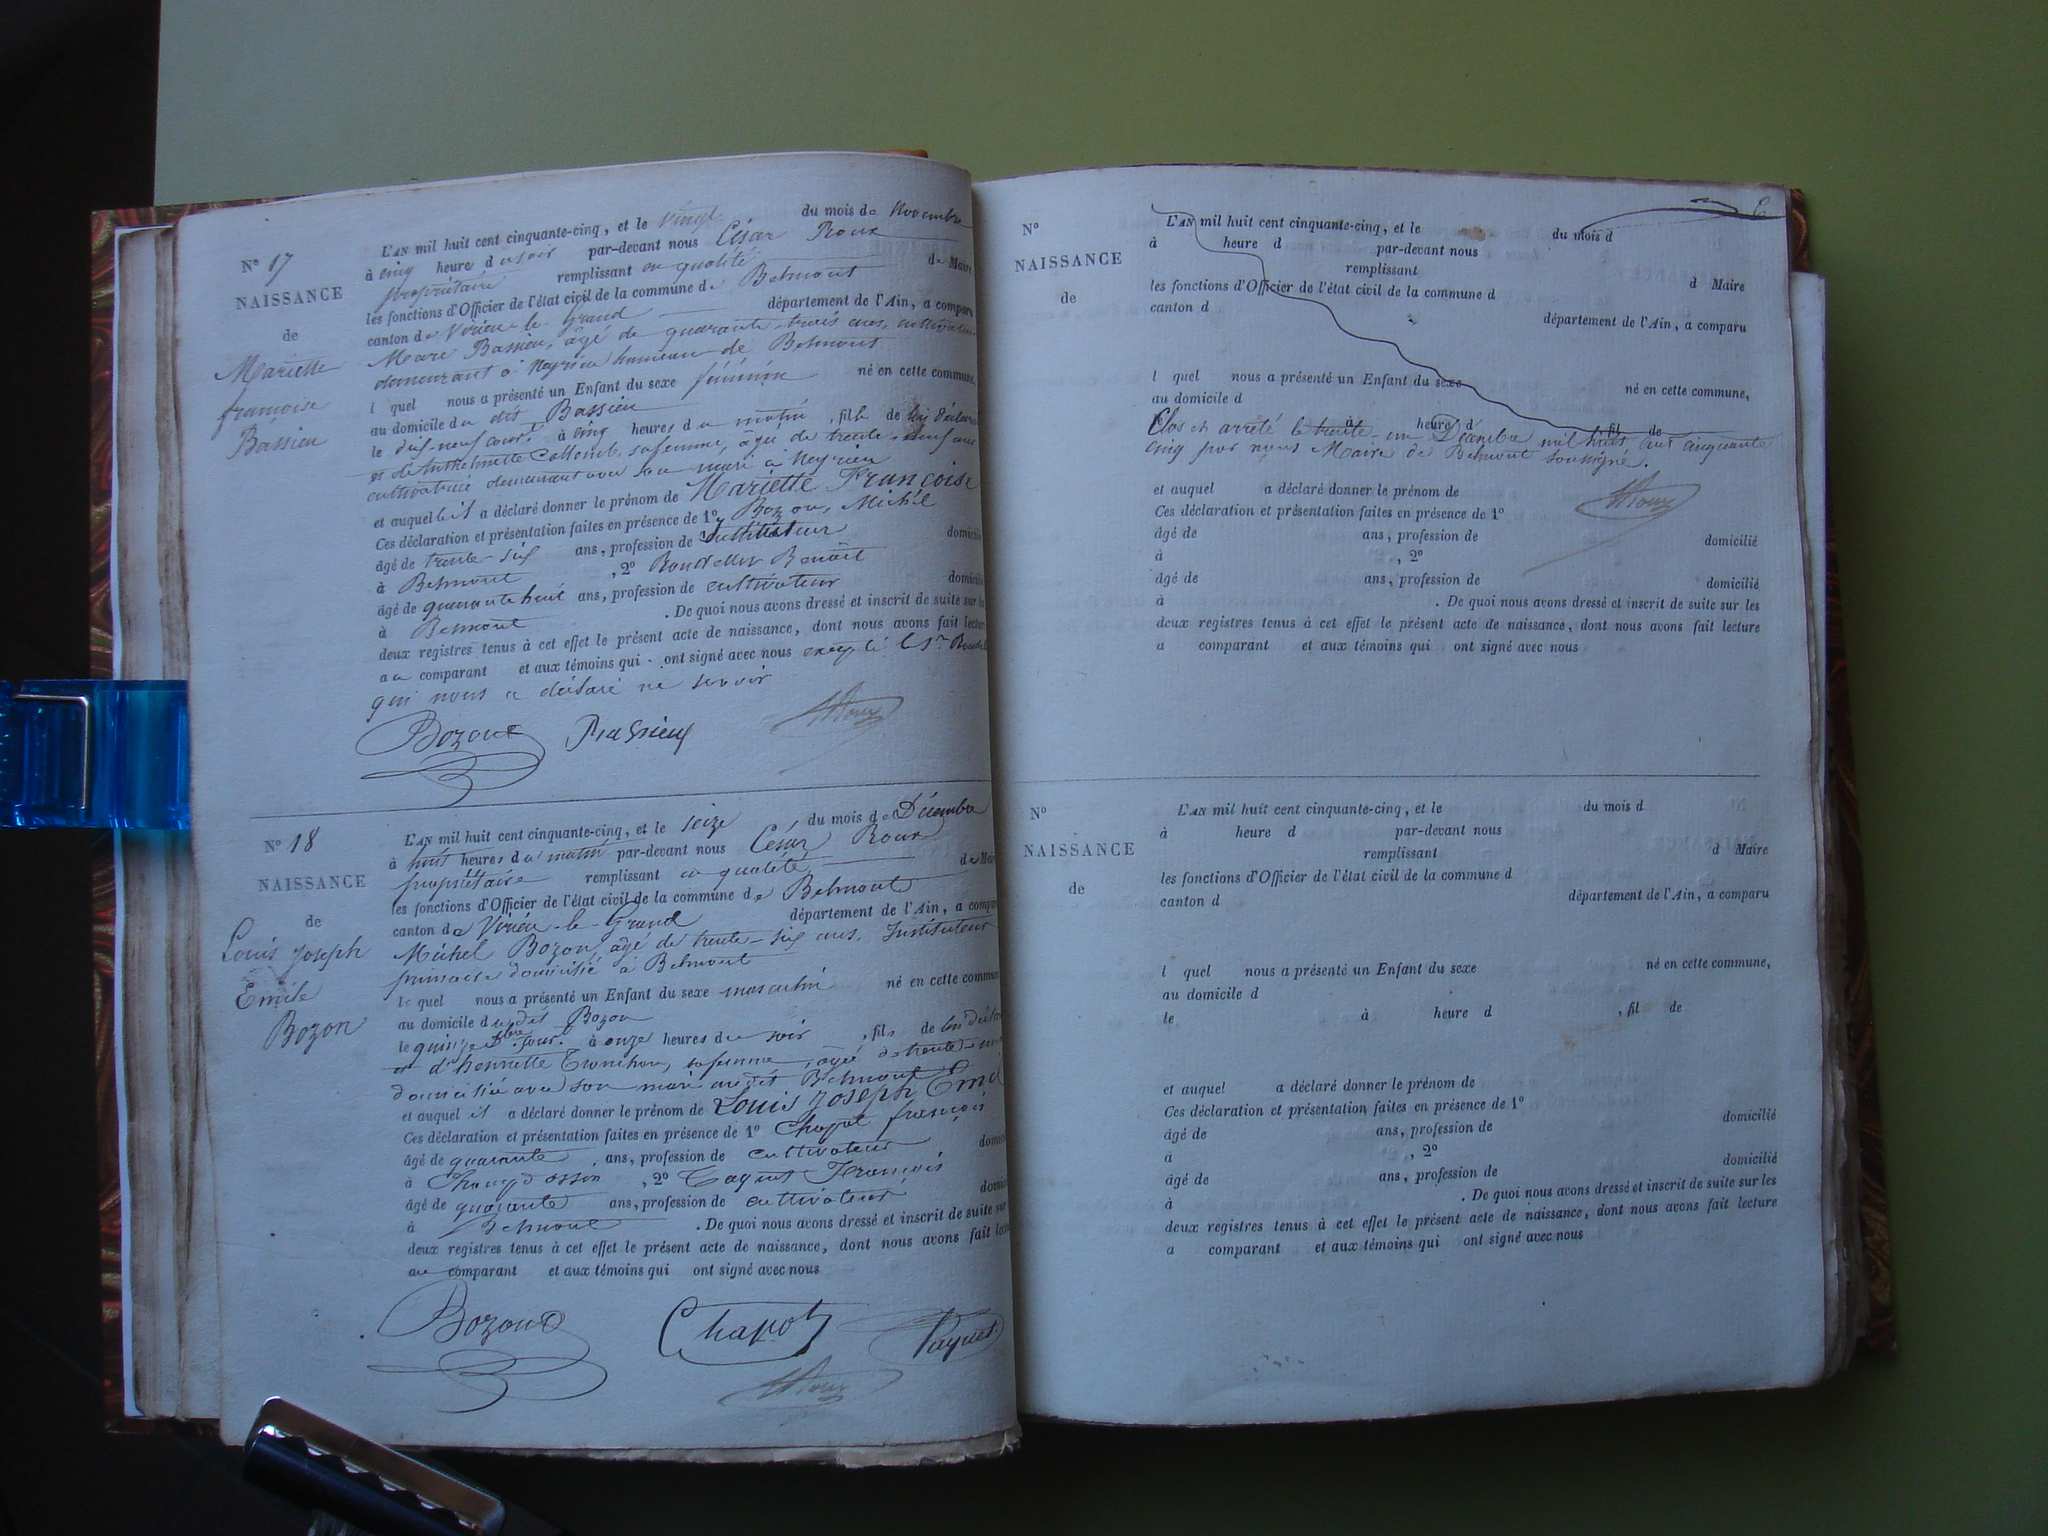 N° 17
NAISSANCE
de
Mariette
françoise
Bassieu
L'AN mil huit cent cinquante-cinq, et le vingt du mois de Novembre
à cinq heure du soir par-devant nous César Roux
propriétaire remplissant en qualité de Maire
les fonctions d'Officier de l'état civil de la commune de Belmont
canton de Virieu-le-Grand département de l'Ain, a comparu
Marc Bassieu, âgé de quarante-trois ans, cultivateur
demeurant à Neyrieu hameau de Belmont
l quel nous a présenté un Enfant du sexe féminin né en cette commune,
au domicile du dit Bassieu
le dix-neuf cour.t à cinq heures du matin, fille de lui déclarant
et de Colomb, sa femme, âgée de trente-neuf ans
cultivatrice demeurant avec son mari à Neyrieu
et auquel il a déclaré donner le prénom de Mariette Françoise
Ces déclaration et présentation faites en présence de 1° Bozon, Michel
âgé de trente-six ans, profession de Instituteur domicilié
à Belmont, 2° Benoît
âgé de quarante huit ans, profession de cultivateur domicilié
à Belmont. De quoi nous avons dressé et inscrit de suite sur les
deux registres tenus à cet effet le présent acte de naissance, dont nous avons fait lecture
au comparant et aux témoins qui ont signé avec nous excepté le Sr
qui nous a déclaré ne savoir
Bozon Bassieu Roux
N° 18
NAISSANCE
de
Louis Joseph
Emile
Bozon
L'AN mil huit cent cinquante-cinq, et le seize du mois de Décembre
à huit heures du matin par-devant nous César Roux
propriétaire remplissant en qualité de Maire
les fonctions d'Officier de l'état civil de la commune de Belmont
canton de Virieu-le-Grand département de l'Ain, a comparu
Michel Bozon, âgé de trente-six ans, Instituteur
primaire domicilié à Belmont
le quel nous a présenté un Enfant du sexe masculin né en cette commune
au domicile du dit Bozon
le quinze Xbre jour. à onze heures du soir, fils de lui déclarant
et d'henriette Tronchon, sa femme, âgée de trente
domiciliée avec son mari au dit Belmont
et auquel il a déclaré donner le prénom de Louis Joseph Emile
Ces déclaration et présentation faites en présence de 1° Chapot françois
âgé de quarante ans, profession de cultivateur domicilié
à Champdossin, 2° Paquet François
âgé de quarante ans, profession de cultivateur domicilié
à Belmont. De quoi nous avons dressé et inscrit de suite sur
deux registres tenus à cet effet le présent acte de naissance, dont nous avons fait lecture
au comparant et aux témoins qui ont signé avec nous
Bozon Chapot Paquet
Roux
N°
NAISSANCE
de
L'AN mil huit cent cinquante-cinq, et le du mois d
à heure d par-devant nous
remplissant d Maire
les fonctions d'Officier de l'état civil de la commune d
canton d département de l'Ain, a comparu
l quel nous a présenté un Enfant du sexe né en cette commune,
au domicile d
le à heure d , fil de
Clos et arrêté le trente-un Décembre mil huit cent cinquante
cinq par nous Maire de Belmont soussigné.
Roux
et auquel a déclaré donner le prénom de
Ces déclaration et présentation faites en présence de 1°
âgé de ans, profession de domicilié
à , 2°
âgé de ans, profession de domicilié
à . De quoi nous avons dressé et inscrit de suite sur les
deux registres tenus à cet effet le présent acte de naissance, dont nous avons fait lecture
a comparant et aux témoins qui ont signé avec nous
N°
NAISSANCE
de
L'AN mil huit cent cinquante-cinq, et le du mois d
à heure d par-devant nous
remplissant d Maire
les fonctions d'Officier de l'état civil de la commune d
canton d département de l'Ain, a comparu
l quel nous a présenté un Enfant du sexe né en cette commune,
au domicile d
le à heure d , fil de
et auquel a déclaré donner le prénom de
Ces déclaration et présentation faites en présence de 1°
âgé de ans, profession de domicilié
à , 2°
âgé de ans, profession de domicilié
à . De quoi nous avons dressé et inscrit de suite sur les
deux registres tenus à cet effet le présent acte de naissance, dont nous avons fait lecture
a comparant et aux témoins qui ont signé avec nous